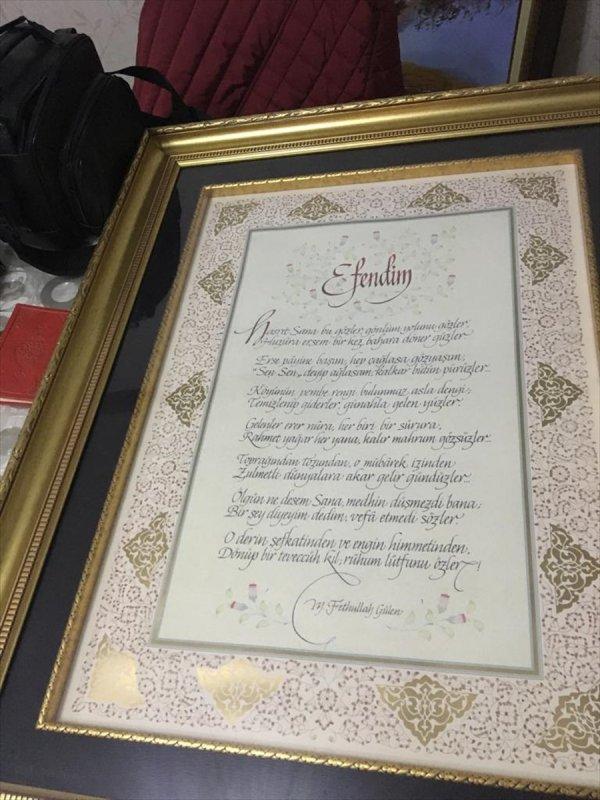 Efendim
Hasret Sana bu gözler, gönlüm yolunu gözler,
Huzûra ersem bir kez, bahara döner güzler.
Erse pâyine başım, hep çağlasa gözyaşım,
"Sen Sen" deyip ağlasam, kalkar bütün pürüzler.
Köyünün pembe rengi bulunmaz asla dengi;
Temizlenip giderler, günahla gelen yüzler.
Gelenler erer nûra, her biri bir sürura,
Rahmet yağar her yana, kalır mahrum gözsüzler..
Toprağından tozundan, o mübârek izinden
Zulmetli dünyalara akar gelir gündüzler..
Ölgün ne desem Sana, medhin düşmezdi bana;
Bir şey diyeyim dedim, vefâ etmedi sözler.
O derin şefkatinden ve engin himmetinden,
Dönüp bir teveccüh kıl, rûhum lûtfunu özler..!
M. Fethullah Gülen